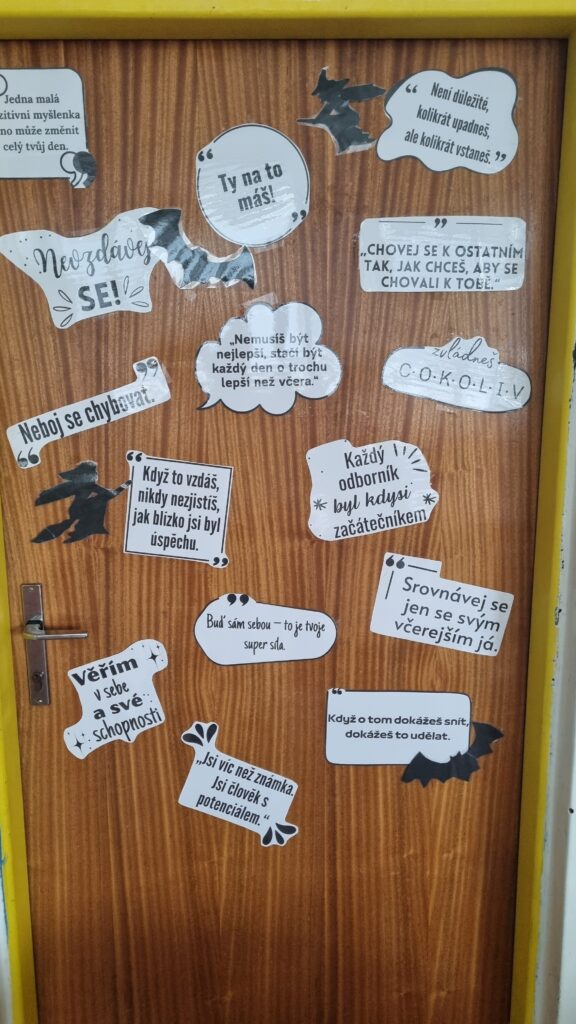 Jedna malá
myšlenka
může změnit
celý tvůj den.
“ Není důležité,
kolikrát upadneš,
ale kolikrát vstaneš. ”
“ Ty na to
máš! ”
Nevzdávej
SE!
„CHOVEJ SE K OSTATNÍM
TAK, JAK CHCEŠ, ABY SE
CHOVALI K TOBĚ.“
„Nemusíš být
nejlepší, stačí být
každý den o trochu
lepší než včera.“
zvládneš
C·O·K·O·L·I·V
Neboj se chybovat.
Každý
odborník
byl kdysi
začátečníkem
Když to vzdáš,
nikdy nezjistíš,
jak blízko jsi byl
úspěchu.
Srovnávej se
jen se svým
včerejším já.
Buď sám sebou – to je tvoje
super síla.
Věřím
v sebe
a své
schopnosti
Když o tom dokážeš snít,
dokážeš to udělat.
„Jsi víc než známka.
Jsi člověk s
potenciálem.“